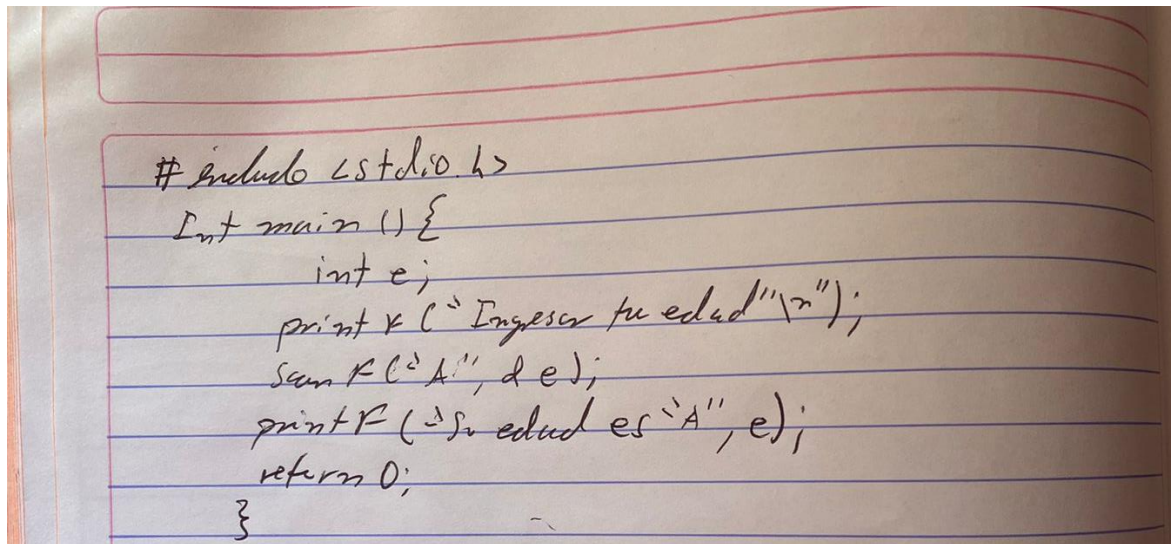 # include <stdio.h>
Int main () {
int e;
printf ("Ingresar tu edad"\n");
scanf ("A", & e);
printf ("Su edad es "A", e);
return 0;
}